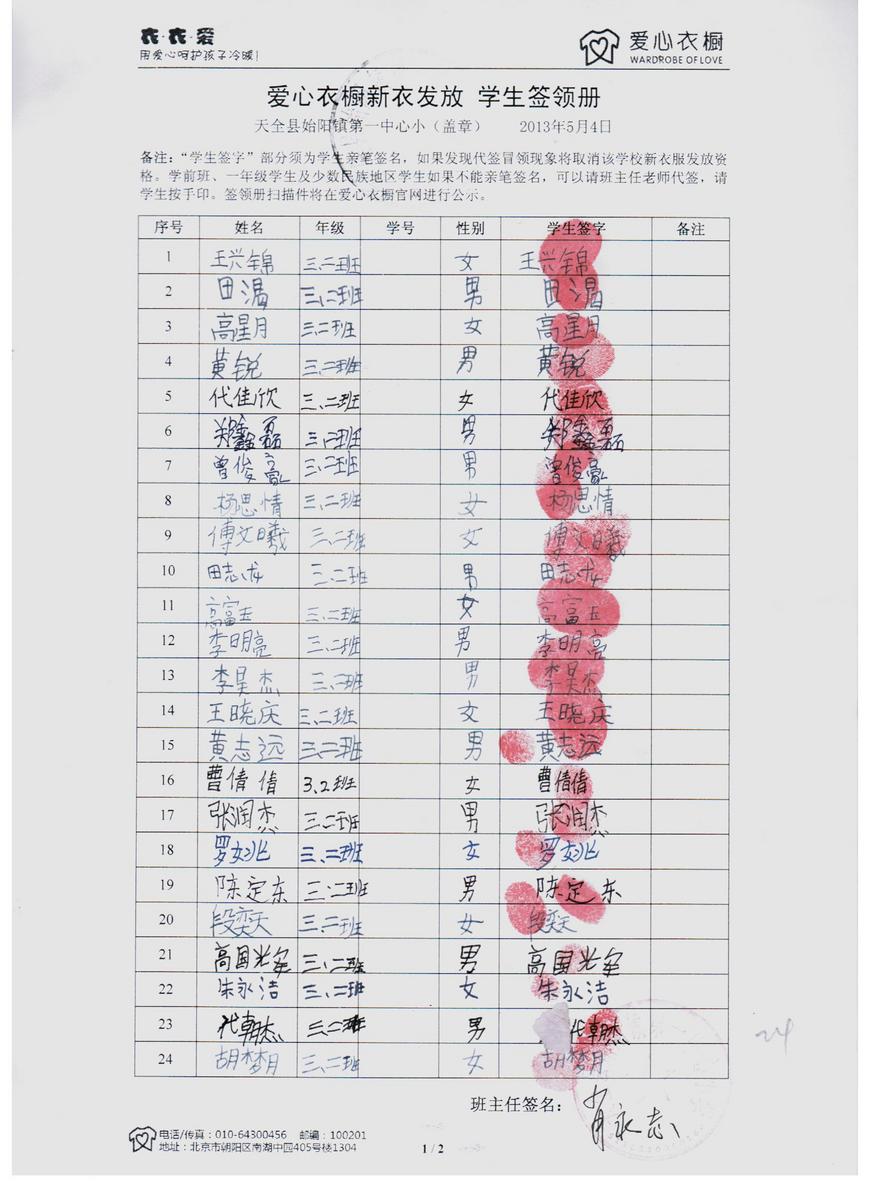 衣·衣·爱
用爱心呵护孩子冷暖!
爱心衣橱
WARDROBE OF LOVE
爱心衣橱新衣发放 学生签领册
天全县始阳镇第一中心小（盖章） 2013年5月4日
备注：“学生签字”部分须为学生亲笔签名，如果发现代签冒领现象将取消该学校新衣服发放资
格。学前班、一年级学生及少数民族地区学生如果不能亲笔签名，可以请班主任老师代签，请
学生按手印。签领册扫描件将在爱心衣橱官网进行公示。
序号 姓名 年级 学号 性别 学生签字 备注
1 王兴锦 三、二班 女 王兴锦
2 田温 三、二班 男 田温
3 高星月 三、二班 女 高星月
4 黄锐 三、二班 男 黄锐
5 代佳欣 三、二班 女 代佳欣
6 郑鑫磊 三、二班 男 郑鑫磊
7 曾俊豪 三、二班 男 曾俊豪
8 杨思情 三、二班 女 杨思情
9 傅文曦 三、二班 女 傅文曦
10 田志成 三、二班 男 田志成
11 高富玉 三、二班 女 高富玉
12 李明亮 三、二班 男 李明亮
13 李昊杰 三、二班 男 李昊杰
14 王晓庆 三、二班 女 王晓庆
15 黄志远 三、二班 男 黄志远
16 曹倩倩 3.2班 女 曹倩倩
17 张润杰 三、二班 男 张润杰
18 三、二班 女
19 陈定东 三、二班 男 陈定东
20 段奕天 三、二班 女 段奕天
21 高国光军 三、二班 男 高国光军
22 朱永洁 三、二班 女 朱永洁
23 代朝杰 三、二班 男 代朝杰
24 胡梦月 三、二班 女 胡梦月
24
班主任签名： 肖永志
电话/传真：010-64300456 邮编：100201
地址：北京市朝阳区南湖中园405号楼1304
1 / 2